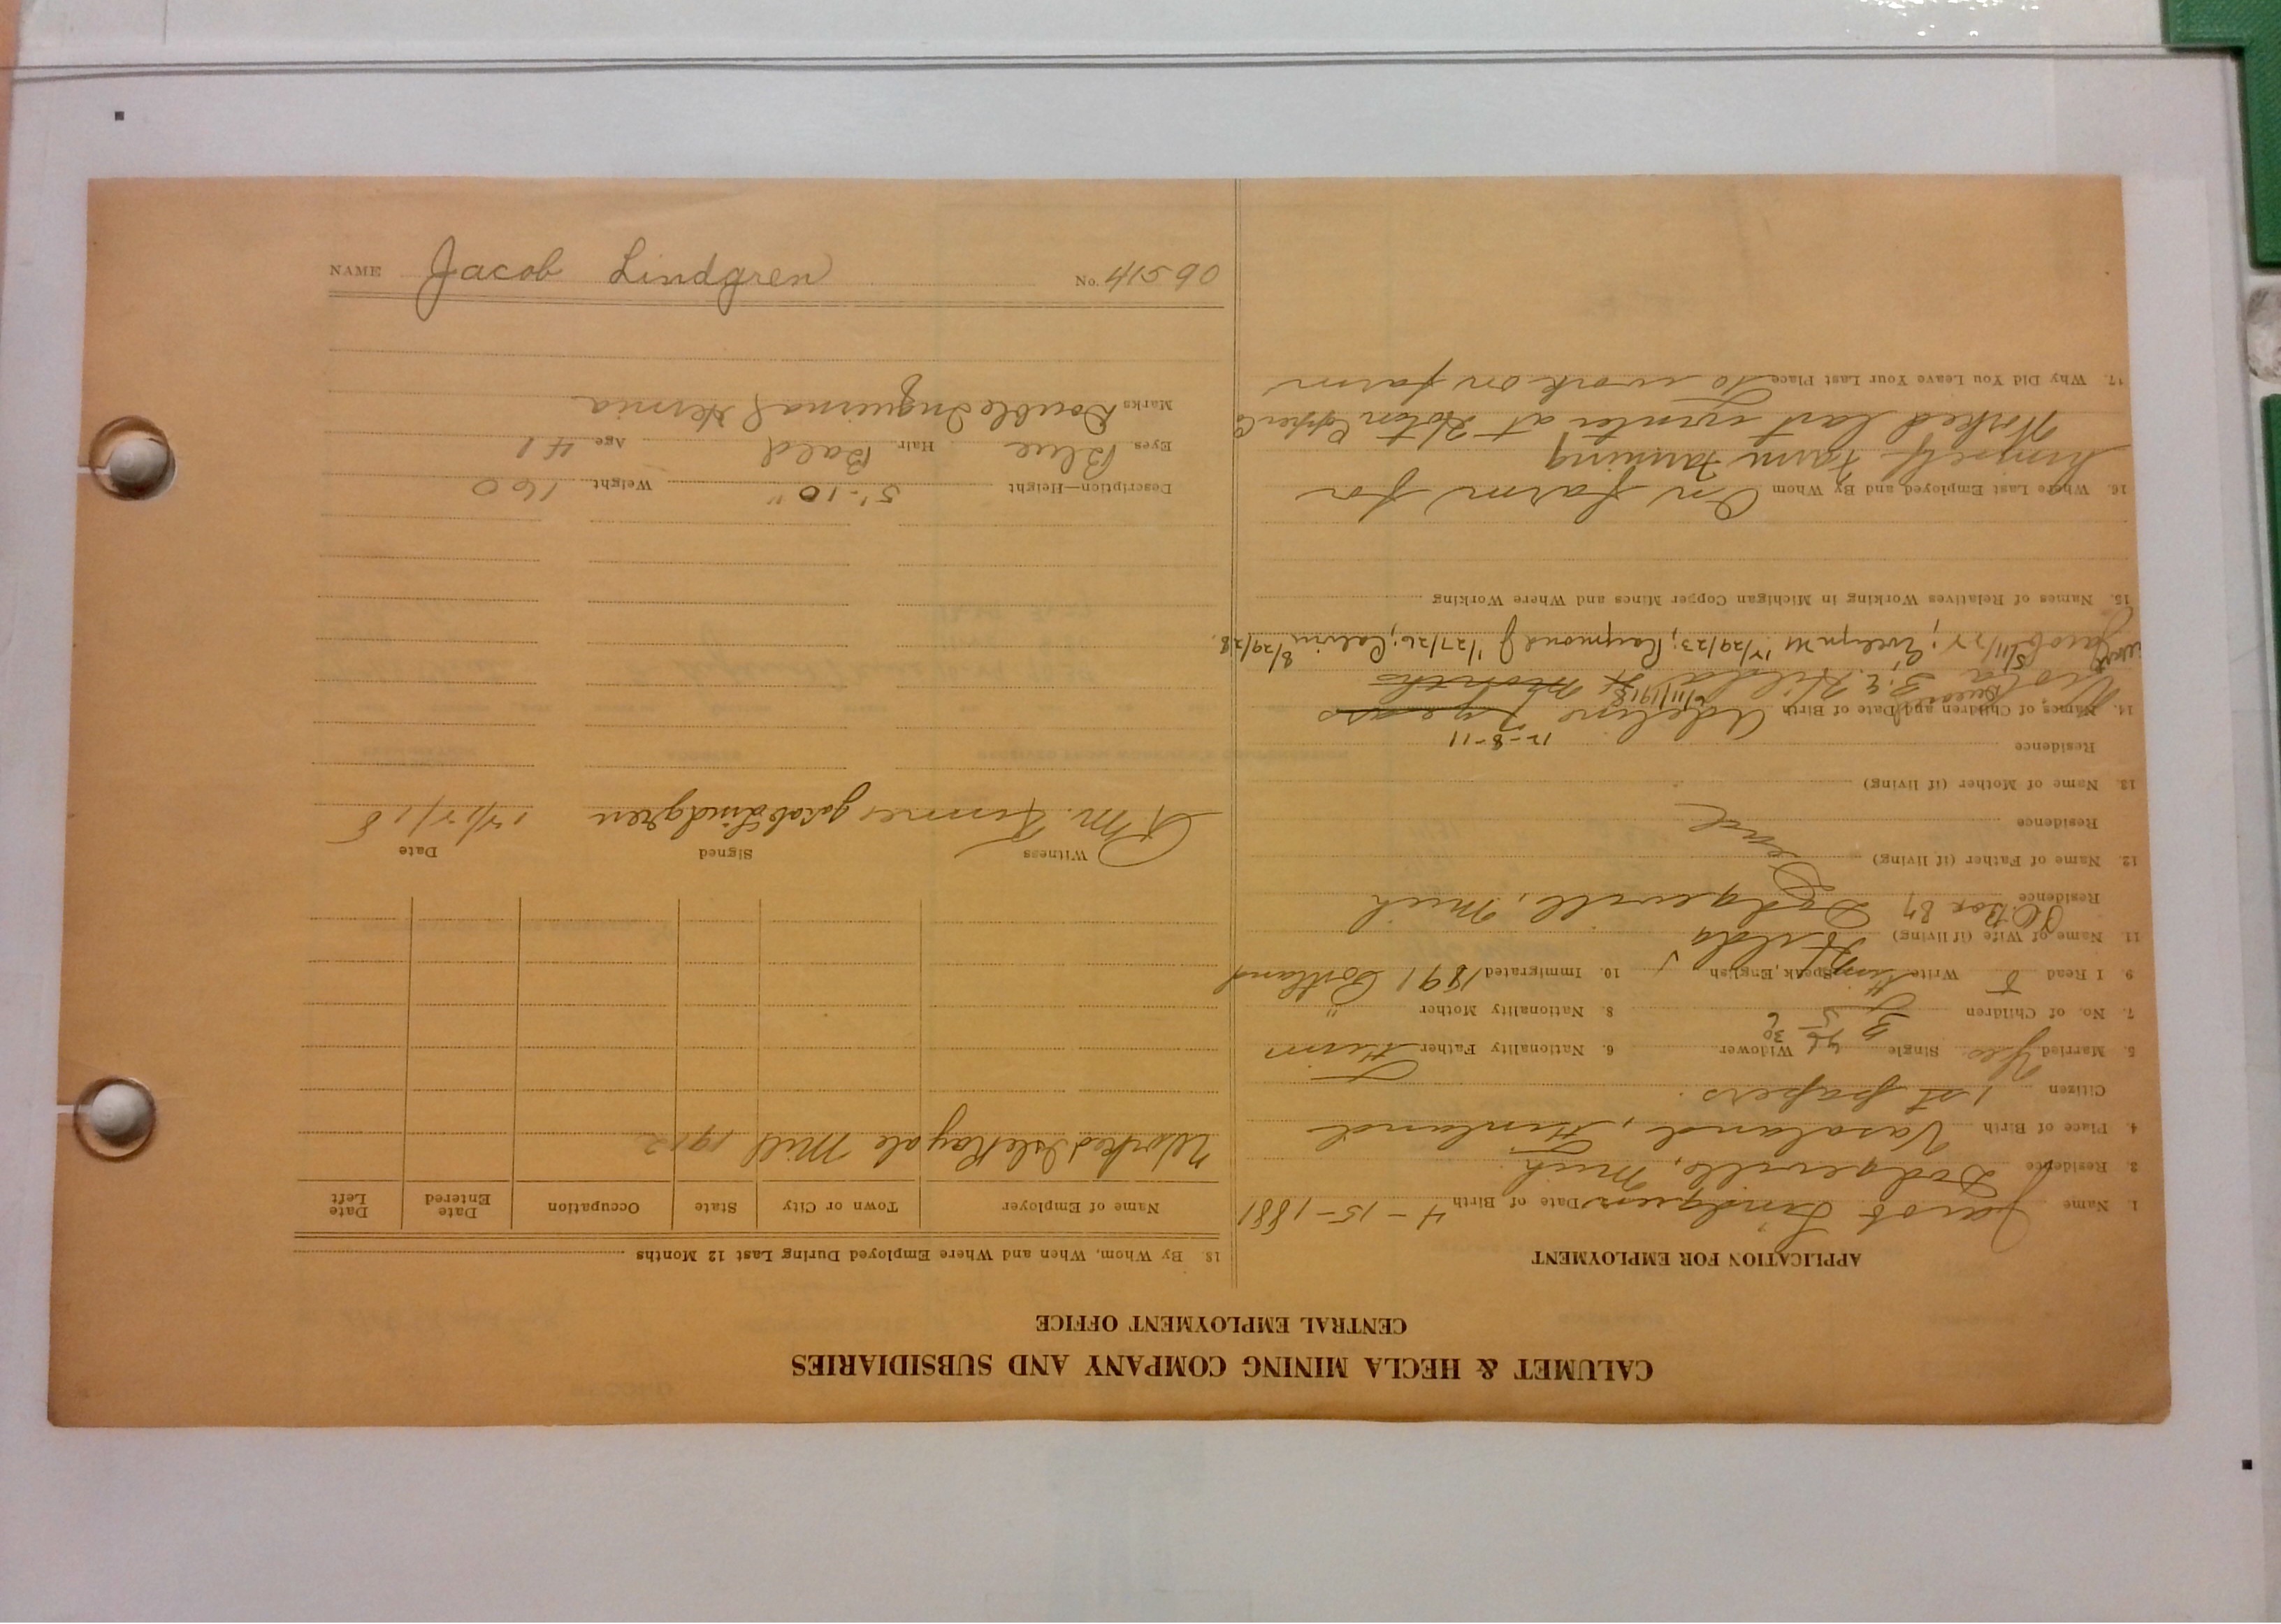 CALUMET & HECLA MINING COMPANY AND SUBSIDIARIES
CENTRAL EMPLOYMENT OFFICE
APPLICATION FOR EMPLOYMENT
1. Name Jacob Lindgren Date of Birth 4-15-1881
3. Residence Dodgeville, Mich.
4. Place of Birth Vasaland, Finland
Citizen 1st papers.
5. Married Yes Single Widower 6. Nationality Father Finn
7. No. of Children 8. Nationality Mother "
9. I Read Write Finn Speak English 10. Immigrated 1891
11. Name of Wife (if living) Hilda
P.O. Box 87
Residence Dodgeville, Mich
12. Name of Father (if living)
Residence
13. Name of Mother (if living)
Residence
12-8-11
14. Names of Children and Date of Birth Adeline 7 years
Hilda 6/11/1918 months
Jacob 5/11/22; Evelyn M 12/29/23; Raymond J 1/27/26; Calvin 8/29/28.
15. Names of Relatives Working in Michigan Copper Mines and Where Working
16. Where Last Employed and By Whom On farm for
himself farm farming
Worked last winter at
17. Why Did You Leave Your Last Place to work on farm
18 By Whom, When and Where Employed During Last 12 Months
Name of Employer Town or City State Occupation Date Entered Date Left
Worked Isle Royale Mill 1912
Witness Signed Date
Jacob Lindgren 12/12/18
Description—Height 5'-10" Weight 160
Eyes Blue Hair Bald Age 41
Marks Double Inguinal Hernia
NAME Jacob Lindgren No. 41590